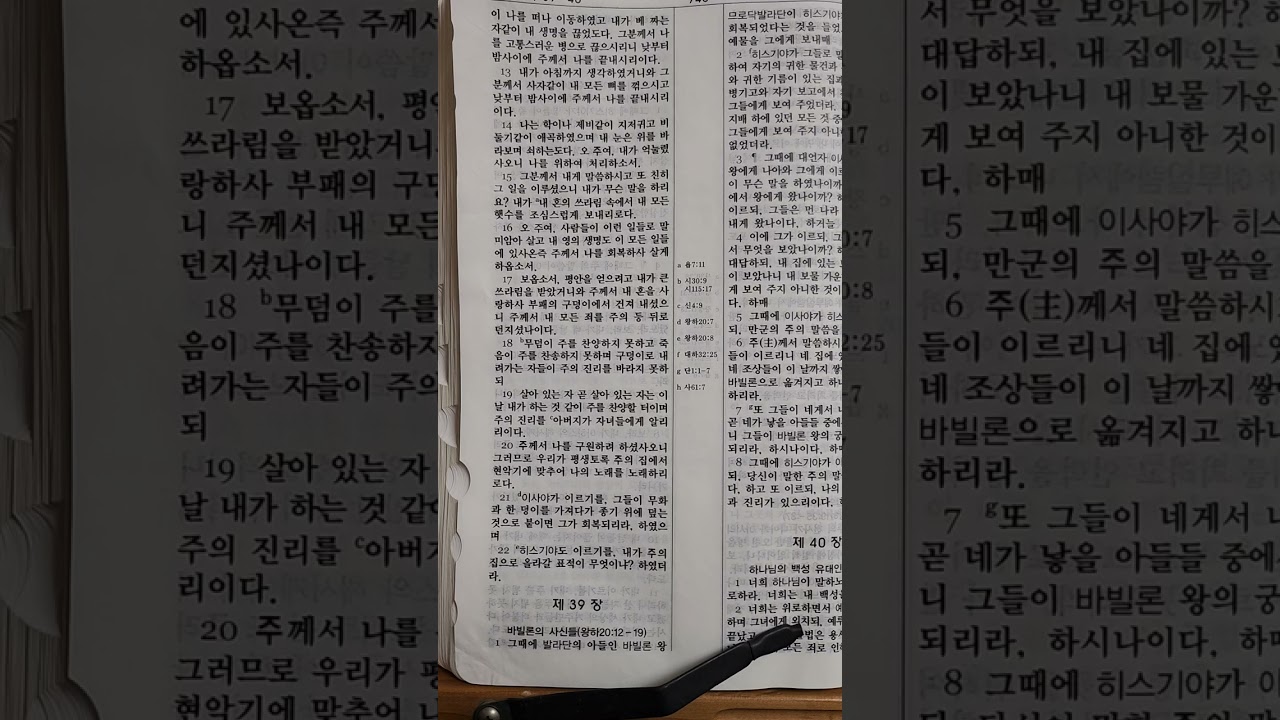 이 나를 떠나 이동하였고 내가 베 짜는
자같이 내 생명을 끊었도다. 그분께서 나
를 고통스러운 병으로 끊으시리니 낮부터
밤사이에 주께서 나를 끝내시리이다.
13 내가 아침까지 생각하였거니와 그
분께서 사자같이 내 모든 뼈를 꺾으시고
낮부터 밤사이에 주께서 나를 끝내시리
이다.
14 나는 학이나 제비같이 지저귀고 비
둘기같이 애곡하였으며 내 눈은 위를 바
라보며 쇠하는도다. 오 주여, 내가 억눌렸
사오니 나를 위하여 처리하소서.
15 그분께서 내게 말씀하시고 또 친히
그 일을 이루셨으니 내가 무슨 말을 하리
요? 내가 a내 혼의 쓰라림 속에서 내 모든
햇수를 조심스럽게 보내리로다.
16 오 주여, 사람들이 이런 일들로 말
미암아 살고 내 영의 생명도 이 모든 일들
에 있사온즉 주께서 나를 회복하사 살게
하옵소서.
17 보옵소서, 평안을 얻으려고 내가 큰
쓰라림을 받았거니와 주께서 내 혼을 사
랑하사 부패의 구덩이에서 건져 내셨으
니 주께서 내 모든 죄를 주의 등 뒤로
던지셨나이다.
18 b무덤이 주를 찬양하지 못하고 죽
음이 주를 찬송하지 못하며 구덩이로 내
려가는 자들이 주의 진리를 바라지 못하
되
19 살아 있는 자 곧 살아 있는 자는 이
날 내가 하는 것 같이 주를 찬양할 터이며
주의 진리를 c아버지가 자녀들에게 알리
리이다.
20 주께서 나를 구원하려 하셨사오니
그러므로 우리가 평생토록 주의 집에서
현악기에 맞추어 나의 노래를 노래하리
로다.
21 d이사야가 이르기를, 그들이 무화
과 한 덩이를 가져다가 종기 위에 덮는
것으로 붙이면 그가 회복되리라, 하였으
며
22 e히스기야도 이르기를, 내가 주의
집으로 올라갈 표적이 무엇이냐? 하였더
라.
제 39 장
바빌론의 사신들(왕하20:12-19)
1 그때에 발라단의 아들인 바빌론 왕
a 욥7:11
b 시30:9
시115:17
c 신4:9
d 왕하20:7
e 왕하20:8
f 대하32:25
g 단1:1-7
h 사61:7
므로닥발라단이 히스기야
회복되었다는 것을 들었
예물을 그에게 보내매
2 f히스기야가 그들로 말
하여 자기의 귀한 물건과
와 귀한 기름이 있는 집과
병기고와 자기 보고에서
그들에게 보여 주었더라.
지배 하에 있던 모든 것 중
그들에게 보여 주지 아니
없었더라.
3 ¶ 그때에 대언자 이
왕에게 나아와 그에게 이
이 무슨 말을 하였나이까
에서 왕에게 왔나이까? 히
이르되, 그들은 먼 나라
내게 왔나이다. 하거늘
4 이에 그가 이르되, 그
서 무엇을 보았나이까? 히
대답하되, 내 집에 있는
이 보았나니 내 보물 가운
게 보여 주지 아니한 것이
다, 하매
5 그때에 이사야가 히스
되, 만군의 주의 말씀을
6 주(主)께서 말씀하시
들이 이르리니 네 집에 있
네 조상들이 이 날까지 쌓
바빌론으로 옮겨지고 하나
하리라.
7 g또 그들이 네게서 나
곧 네가 낳을 아들들 중에
니 그들이 바빌론 왕의 궁
되리라, 하시나이다. 하
8 그때에 히스기야가 이
되, 당신이 말한 주의 말
다, 하고 또 이르되, 나의
과 진리가 있으리이다.
제 40 장
하나님의 백성 유대인
1 너희 하나님이 말하노
로하라, 너희는 내 백성
2 너희는 위로하면서 예
하며 그녀에게 외치되, 예루
끝났고